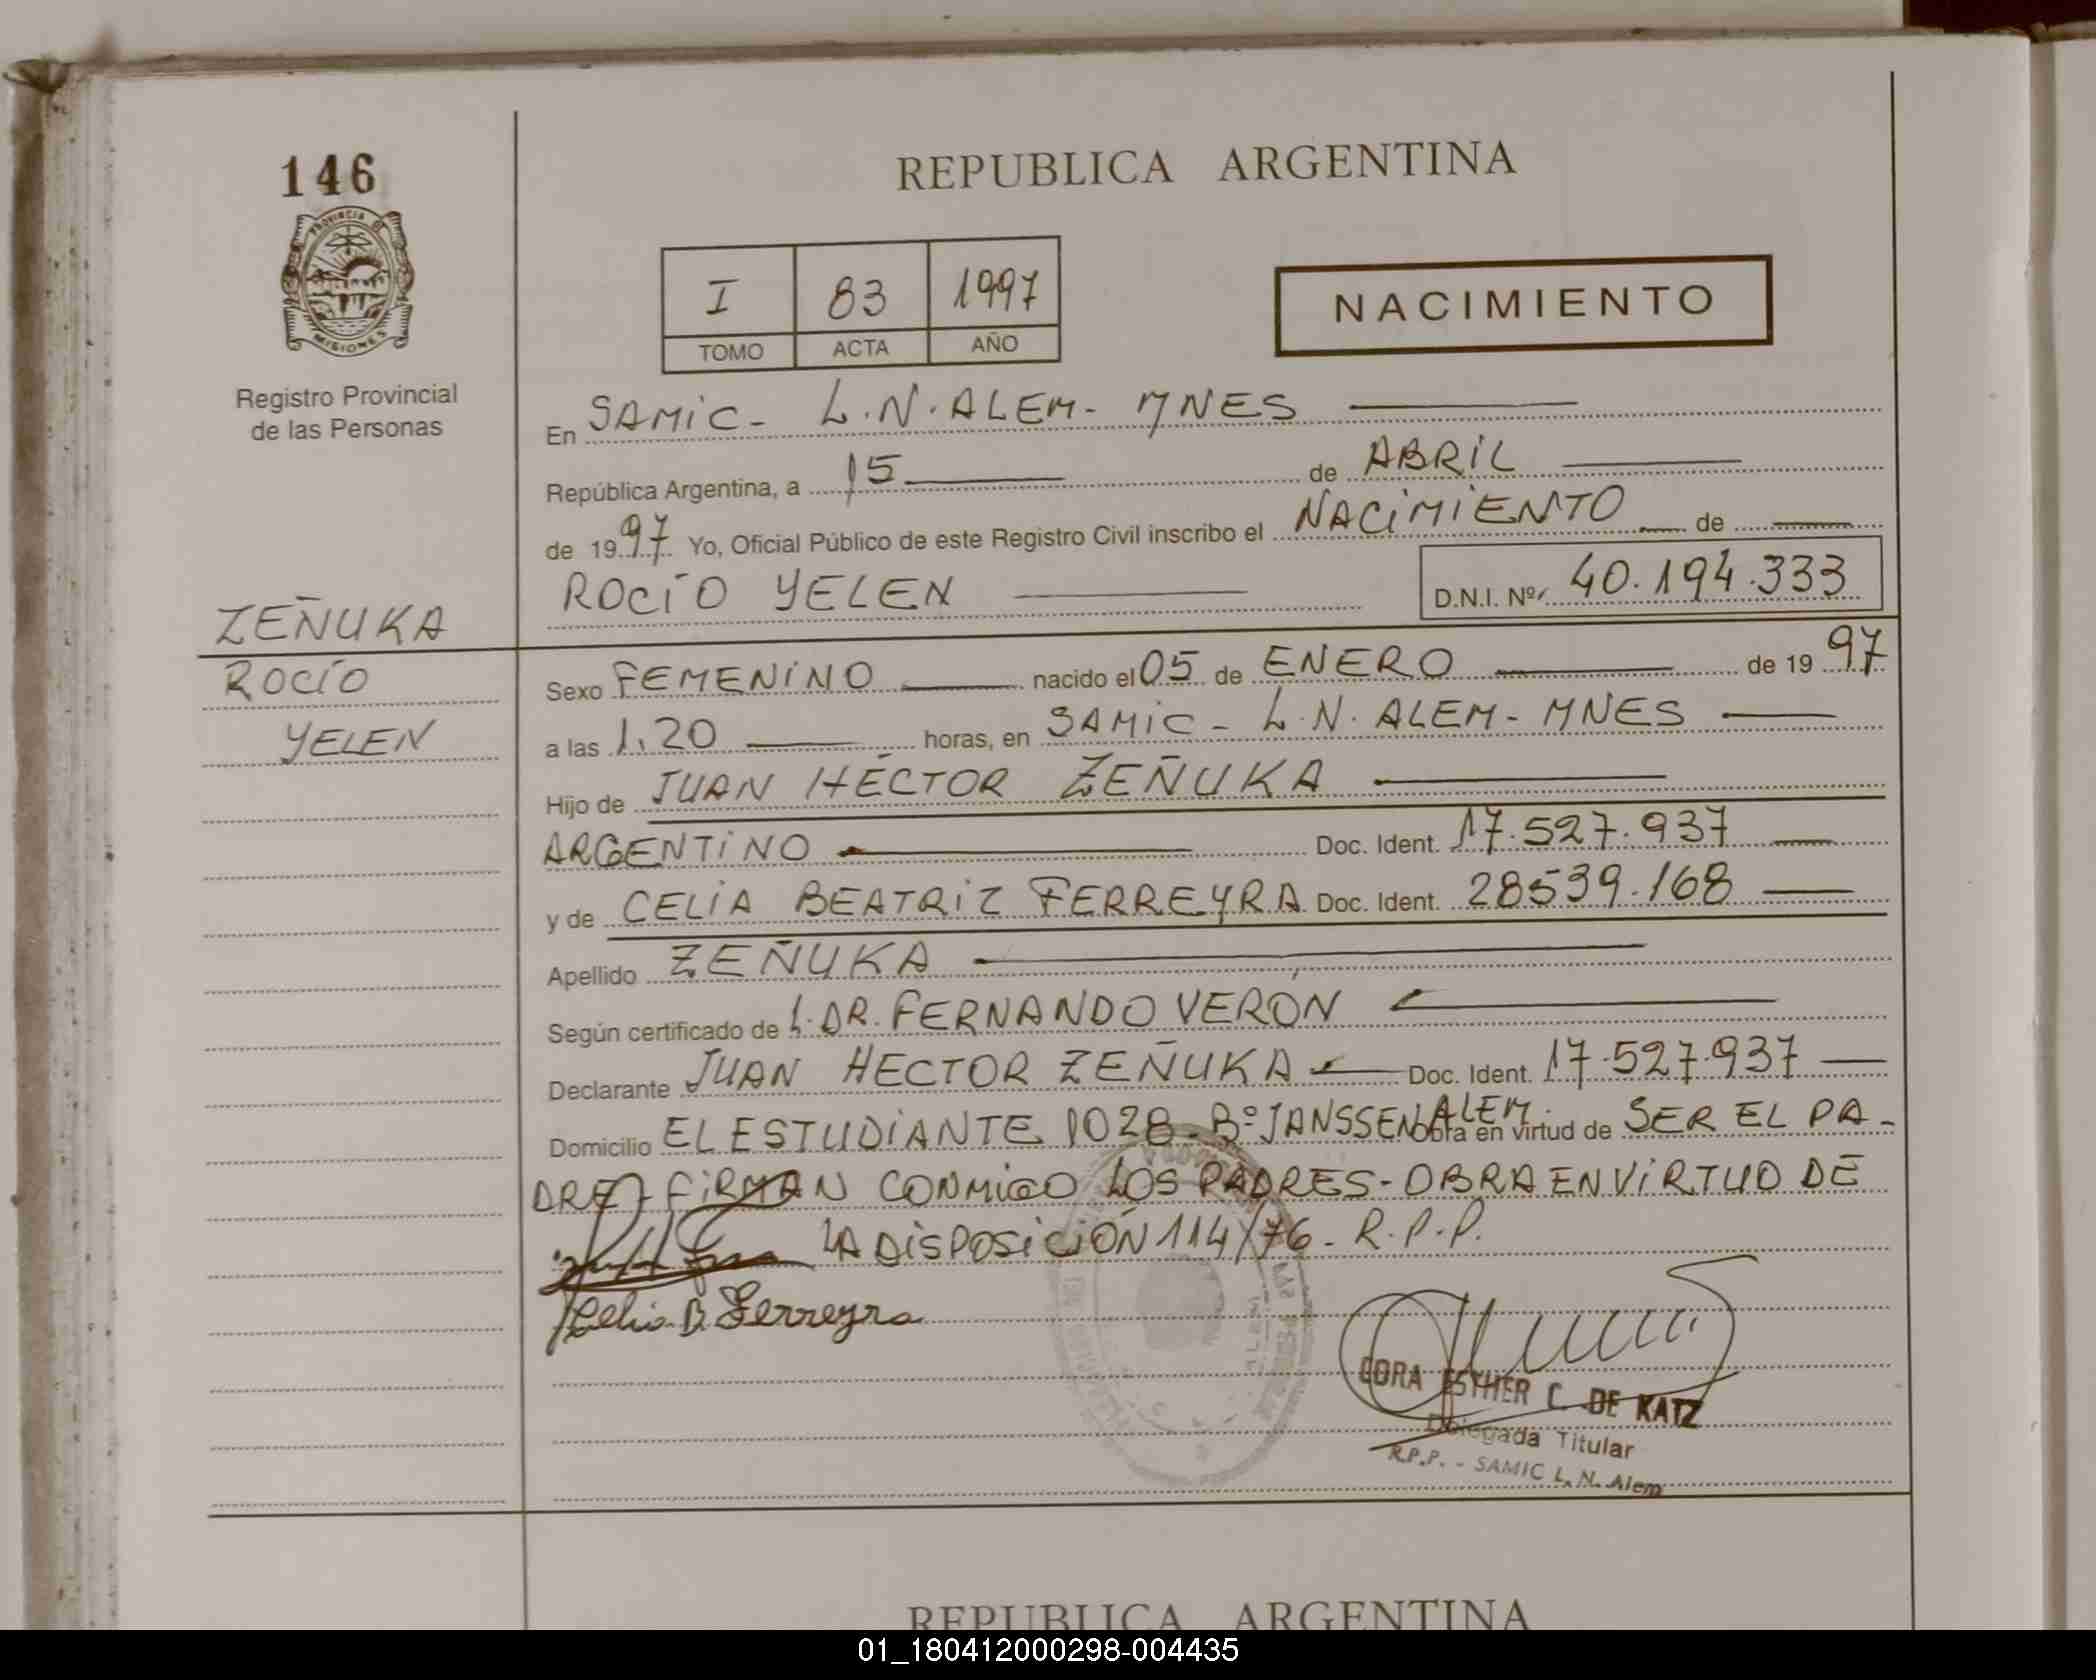 146
REPUBLICA ARGENTINA
PROVINCIA DE
MISIONES
Registro Provincial
de las Personas
I 83 1997
TOMO ACTA AÑO
NACIMIENTO
En SAMIC - L.N. ALEM - MNES
República Argentina, a 15 de ABRIL
de 1997 Yo, Oficial Público de este Registro Civil inscribo el NACIMIENTO de
ROCÍO YELEN D.N.I. Nº 40.194.333
ZEÑUKA
ROCÍO
YELEN
Sexo FEMENINO nacido el 05 de ENERO de 1997
a las 1.20 horas, en SAMIC - L.N. ALEM - MNES
Hijo de JUAN HÉCTOR ZEÑUKA
ARGENTINO Doc. Ident. 17.527.937
y de CELIA BEATRIZ FERREYRA Doc. Ident. 28539.168
Apellido ZEÑUKA
Según certificado de L. DR. FERNANDO VERÓN
Declarante JUAN HECTOR ZEÑUKA Doc. Ident. 17.527.937
Domicilio EL ESTUDIANTE 1028 - Bº JANSSEN ALEM. Obra en virtud de SER EL PA-
DRE - FIRMAN CONMIGO LOS PADRES - OBRA EN VIRTUD DE
LA DISPOSICIÓN 114/76 - R.P.P.
Celia B. Ferreyra
CORA ESTHER C. DE KATZ
Delegada Titular
R.P.P. - SAMIC L. N. Alem
REPUBLICA ARGENTINA
01_180412000298-004435